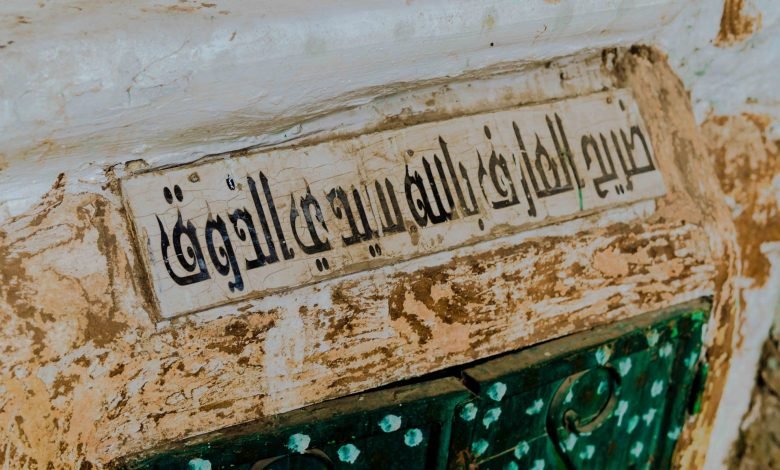 ضريح العارف بالله سيدي الذوق